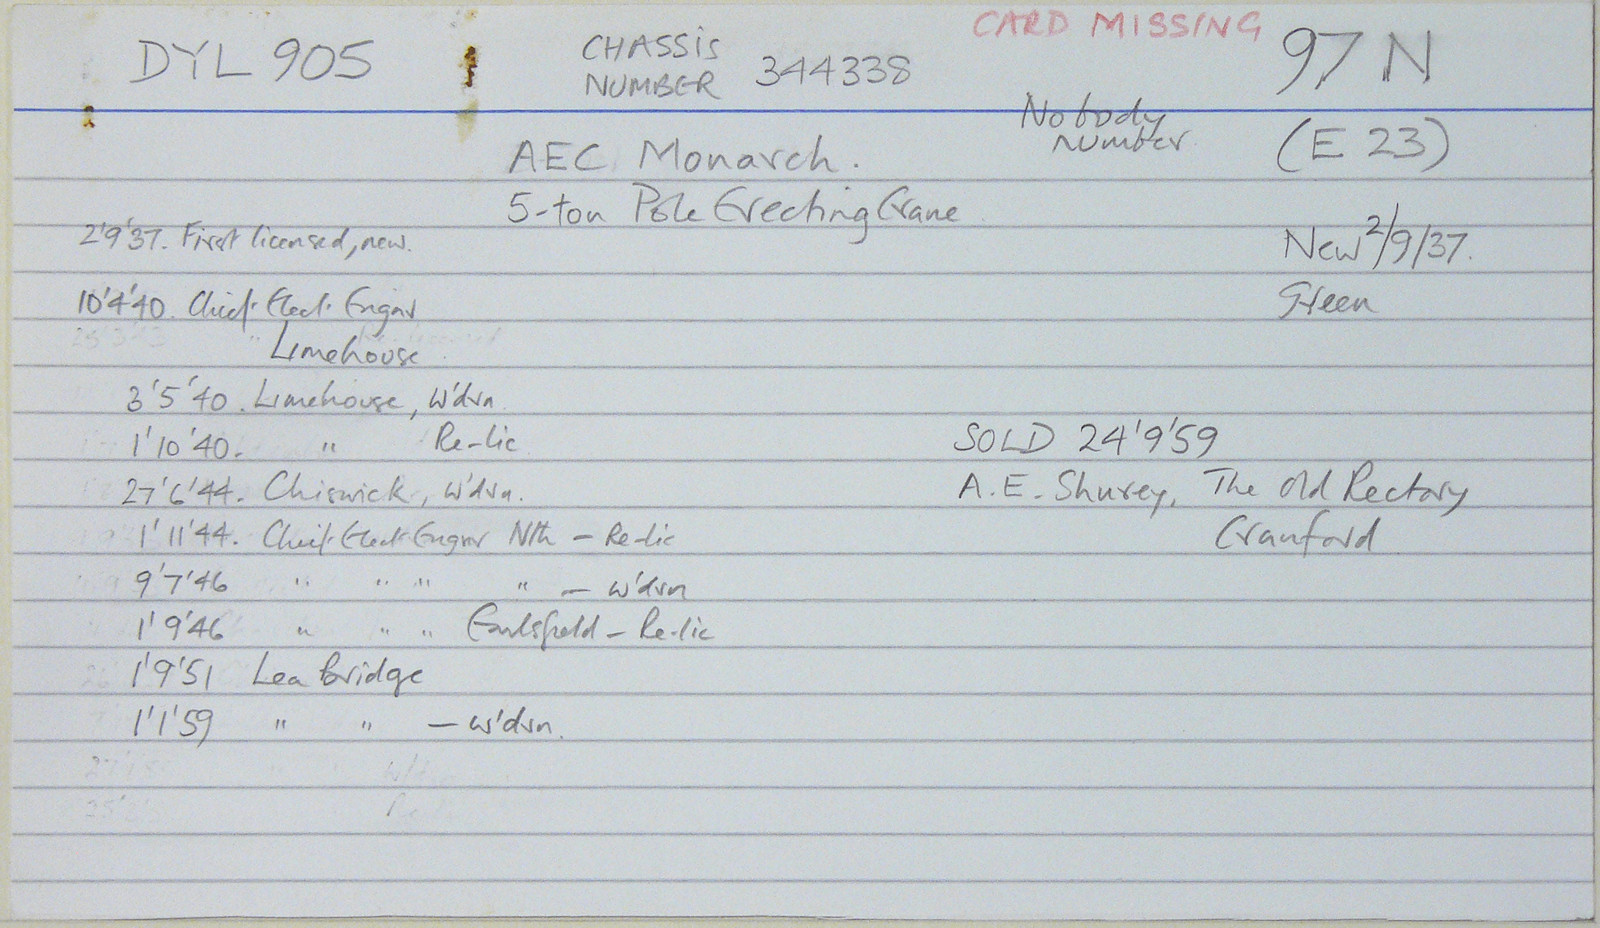 CARD MISSING
DYL 905 CHASSIS NUMBER 344338 97 N
No body number (E 23)
AEC Monarch.
5-ton Pole Erecting Crane
2'9'37. First licensed, new. New 2/9/37.
10'4'40. Chief. Elect. Engnr Green
Limehouse
3'5'40. Limehouse, w'drn.
1'10'40. " Re-lic SOLD 24'9'59
27'6'44. Chiswick, w'drn. A.E. Shurey, The Old Rectory
1'11'44. Chief. Elect. Engnr Nth - Re-lic Cranford
9'7'46 " " " " - w'drn
1'9'46 " " " Earlsfield - Re-lic
1'9'51 Lea Bridge
1'1'59 " " - w'drn.